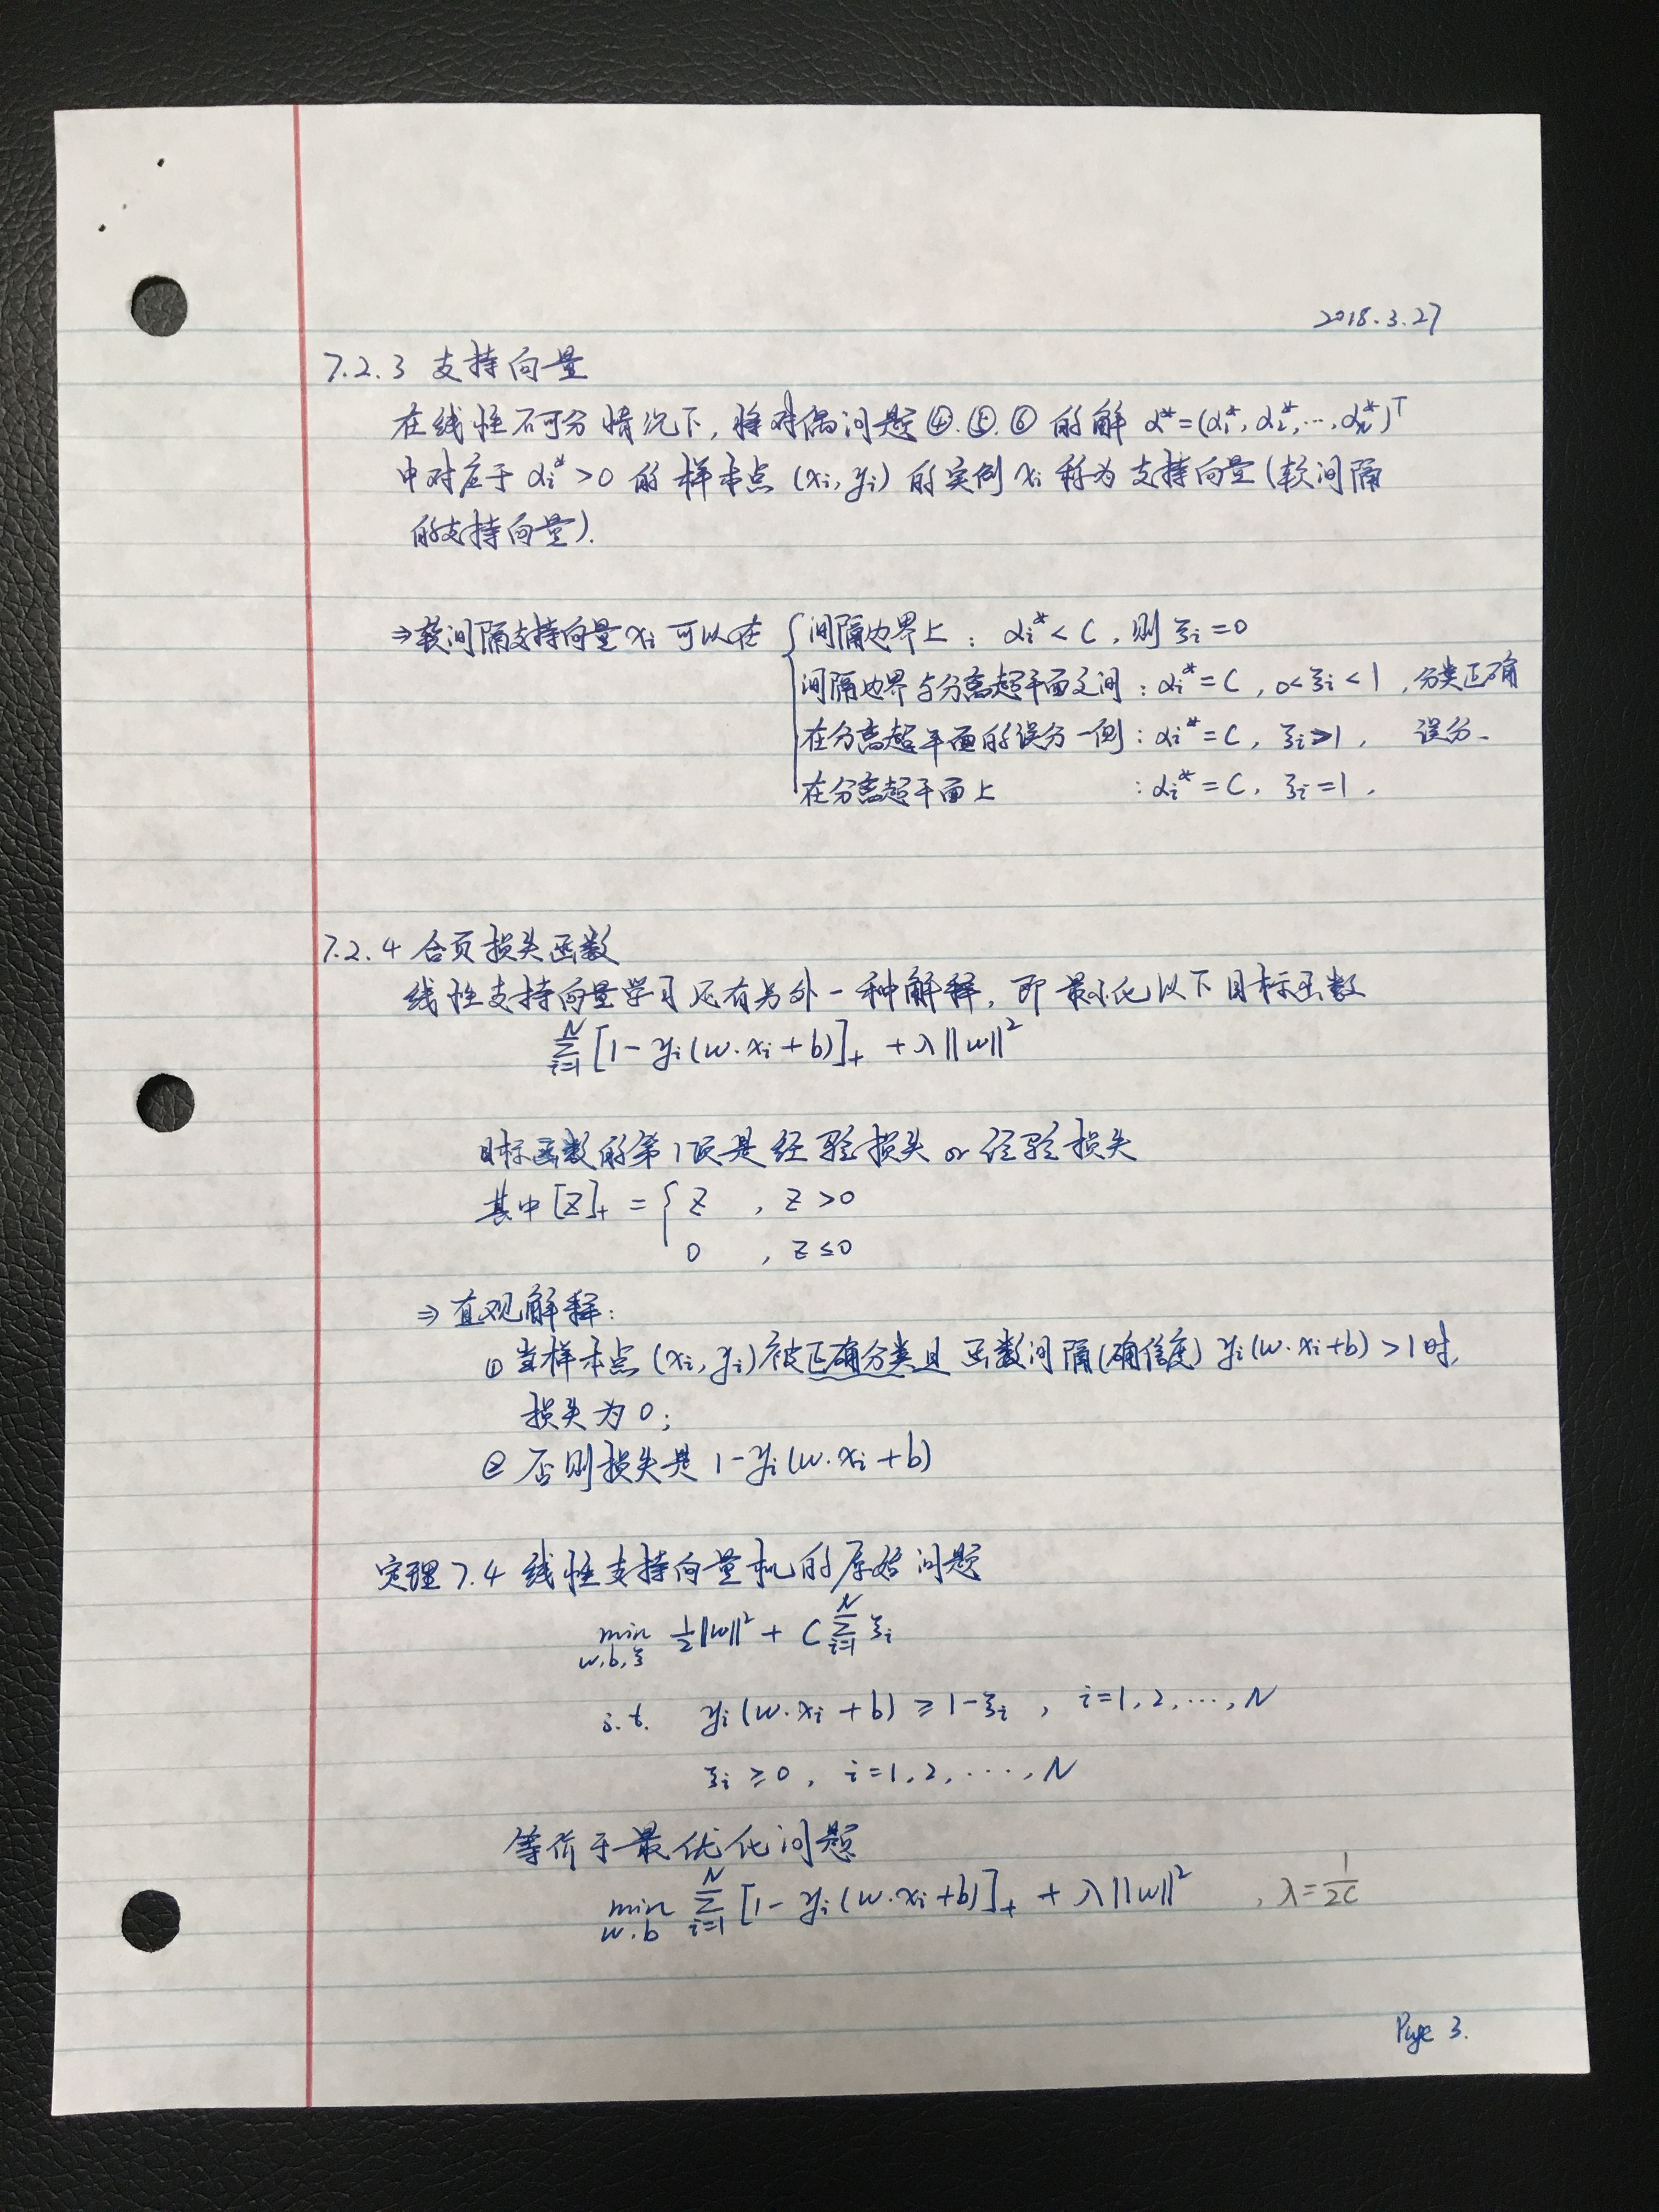 2018.3.27
7.2.3 支持向量
在线性不可分情况下，将对偶问题④.⑤.⑥的解 α*=(α₁*, α₂*, ..., α_N*)ᵀ
中对应于 αᵢ*>0 的样本点 (xᵢ, yᵢ) 的实例 xᵢ 称为支持向量(软间隔
的支持向量).
⇒软间隔支持向量 xᵢ 可以在 { 间隔边界上 : αᵢ*<C, 则 ξᵢ=0
间隔边界与分离超平面之间 : αᵢ*=C, 0<ξᵢ<1, 分类正确
在分离超平面的误分一侧 : αᵢ*=C, ξᵢ>1, 误分.
在分离超平面上 : αᵢ*=C, ξᵢ=1.
7.2.4 合页损失函数
线性支持向量学习还有另外一种解释, 即最小化以下目标函数
∑ᵢ₌₁ᴺ [1-yᵢ(w·xᵢ+b)]₊ + λ||w||²
目标函数的第1项是经验损失 or 经验损失
其中 [z]₊ = { z , z>0
0 , z≤0
⇒ 直观解释:
① 当样本点 (xᵢ, yᵢ) 被正确分类且函数间隔(确信度) yᵢ(w·xᵢ+b)>1时,
损失为0;
② 否则损失是 1-yᵢ(w·xᵢ+b)
定理7.4 线性支持向量机的原始问题
min w,b,ξ ½||w||² + C∑ᵢ₌₁ᴺ ξᵢ
s.t. yᵢ(w·xᵢ+b) ≥ 1-ξᵢ , i=1,2,...,N
ξᵢ ≥ 0 , i=1,2,...,N
等价于最优化问题
min w,b ∑ᵢ₌₁ᴺ [1-yᵢ(w·xᵢ+b)]₊ + λ||w||² , λ=1/2C
Page 3.